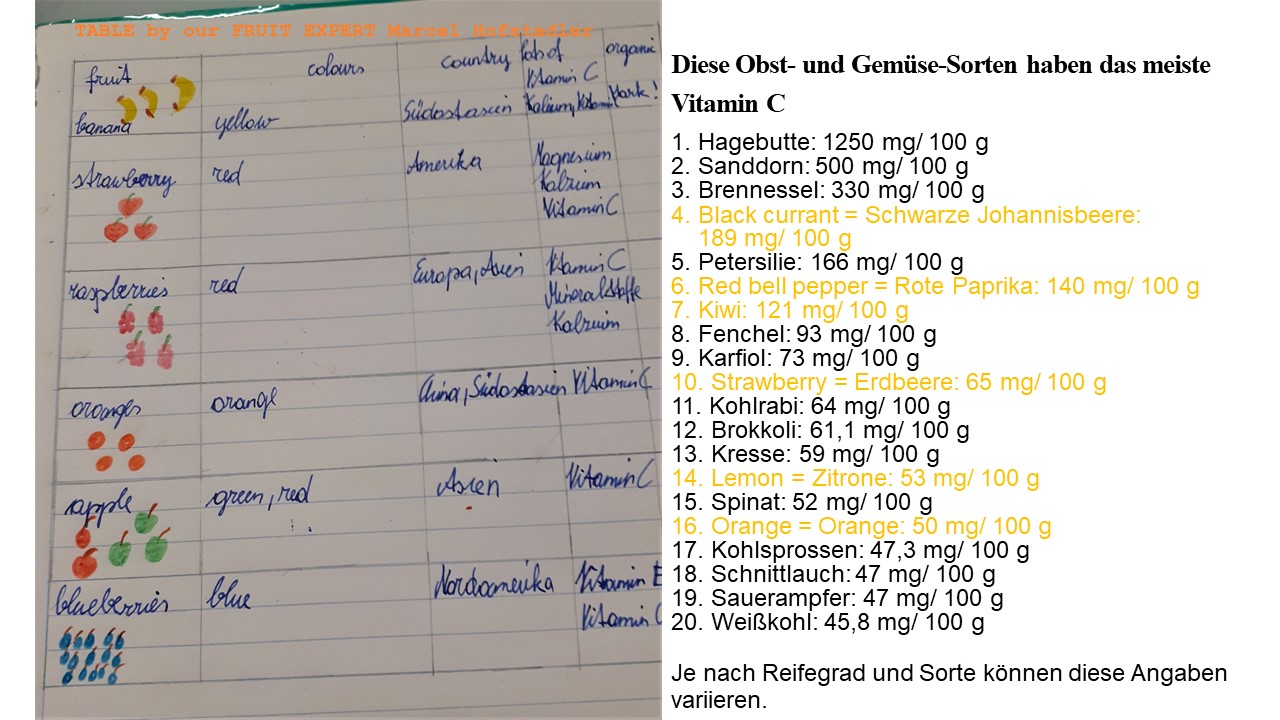 TABLE by our FRUIT EXPERT Marcel Hofstadler
fruit colours country lots of organic
Vitamin C
banana yellow Südostasien Kalium, Vitamin Mark!
strawberry red Amerika Magnesium
Kalzium
Vitamin C
raspberries red Europa, Asien Vitamin C
Mineralstoffe
Kalzium
oranges orange China, Südostasien Vitamin C
apple green, red Asien Vitamin C
blueberries blue Nordamerika Vitamin E
Vitamin C
Diese Obst- und Gemüse-Sorten haben das meiste
Vitamin C
1. Hagebutte: 1250 mg/ 100 g
2. Sanddorn: 500 mg/ 100 g
3. Brennessel: 330 mg/ 100 g
4. Black currant = Schwarze Johannisbeere:
189 mg/ 100 g
5. Petersilie: 166 mg/ 100 g
6. Red bell pepper = Rote Paprika: 140 mg/ 100 g
7. Kiwi: 121 mg/ 100 g
8. Fenchel: 93 mg/ 100 g
9. Karfiol: 73 mg/ 100 g
10. Strawberry = Erdbeere: 65 mg/ 100 g
11. Kohlrabi: 64 mg/ 100 g
12. Brokkoli: 61,1 mg/ 100 g
13. Kresse: 59 mg/ 100 g
14. Lemon = Zitrone: 53 mg/ 100 g
15. Spinat: 52 mg/ 100 g
16. Orange = Orange: 50 mg/ 100 g
17. Kohlsprossen: 47,3 mg/ 100 g
18. Schnittlauch: 47 mg/ 100 g
19. Sauerampfer: 47 mg/ 100 g
20. Weißkohl: 45,8 mg/ 100 g
Je nach Reifegrad und Sorte können diese Angaben
variieren.